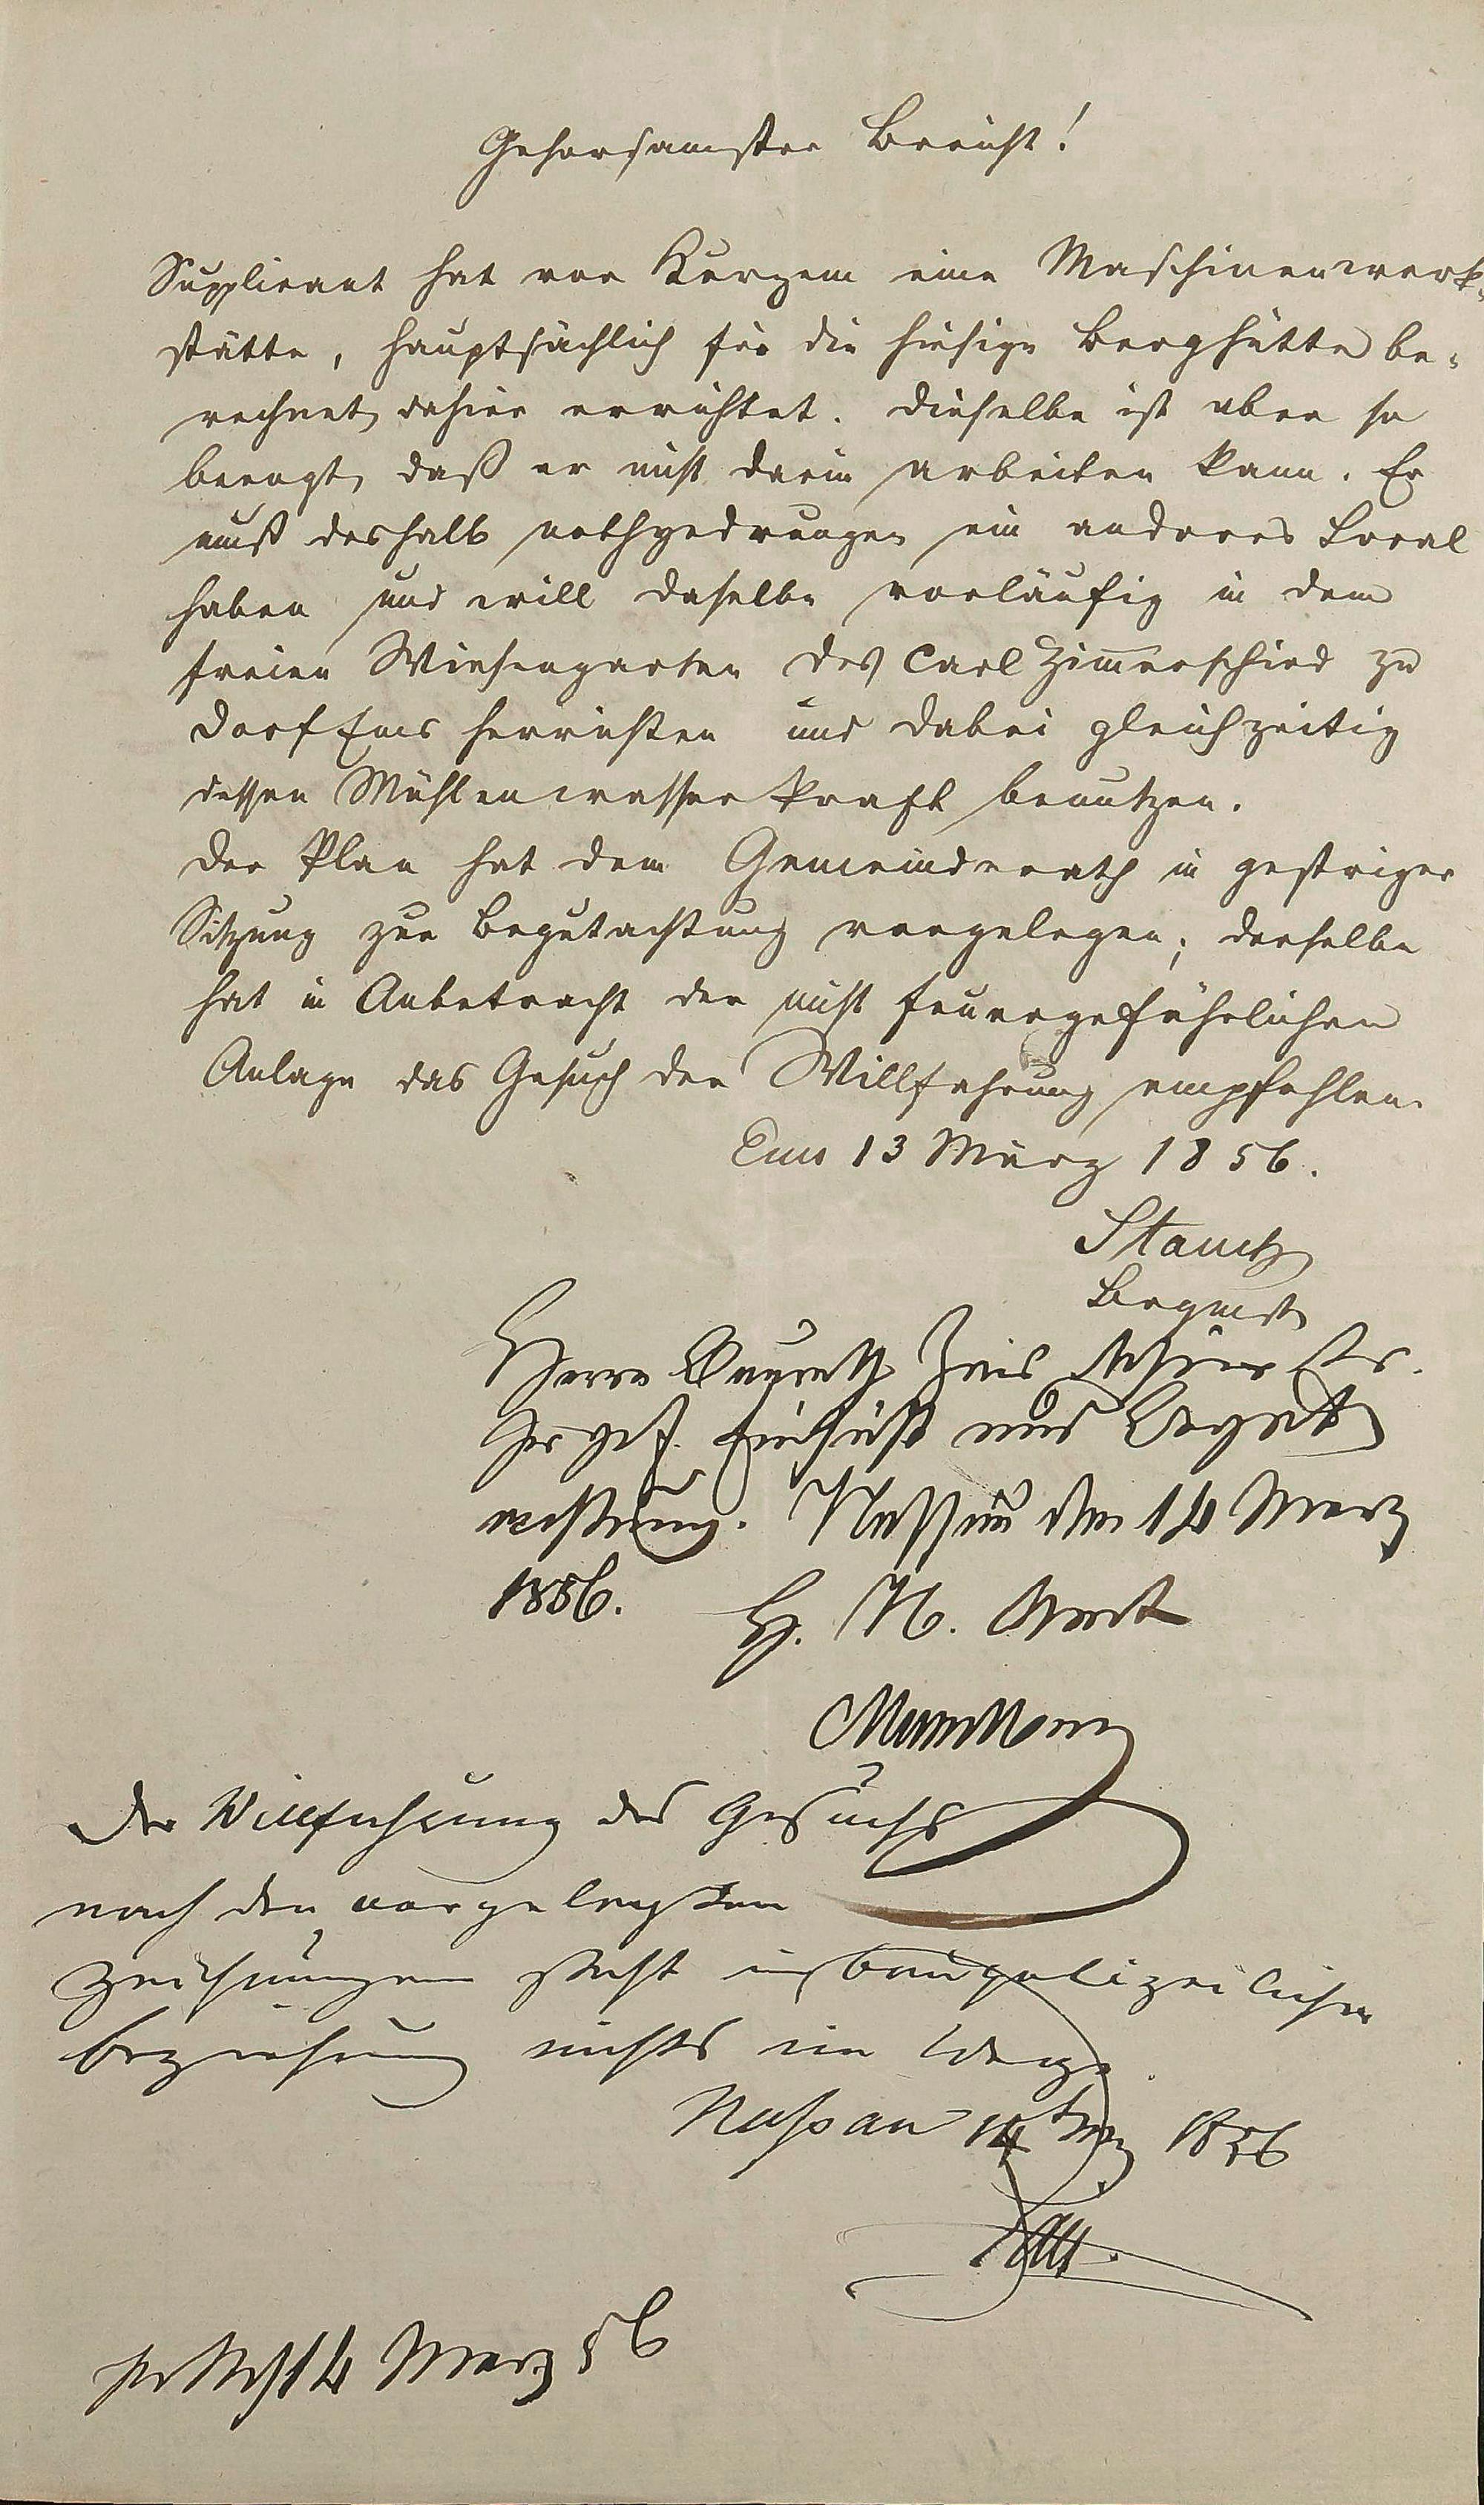 Gehorsamster Bericht!
Supplicant hat vor Kurzem eine Maschinenwerk-
stätte, hauptsächlich für die hiesige Berghütte be-
rechnet, dahier errichtet. Dieselbe ist aber so
beengt, daß er nicht darin arbeiten kann. Er
muß deshalb nothgedrungen ein anderes Local
haben und will daselbe vorläufig in dem
freien Wiesengarten des Carl Zimmerschied zu
Dorf Ems herrichten und dabei gleichzeitig
dessen Mühlenwasserkraft benutzen.
Der Plan hat dem Gemeinderath in gestriger
Sitzung zur Begutachtung vorgelegen; derselbe
hat in Anbetracht der nicht feuergefährlichen
Anlage das Gesuch der Willfahrung empfohlen.
Ems 13 März 1856.
Stauch
Brgmstr
Herrn Baurath Zais dahier
zur gef. Einsicht und Begut
achtung. Nassau den 14 Merz
1856. H. N. Amt
Der Willfahrung des Gesuchs
nach den vorgelegten
Zeichnungen steht in baupolizeilicher
Beziehung nichts im Wege.
Nassau 14 Mrz 1856
14 Merz 56